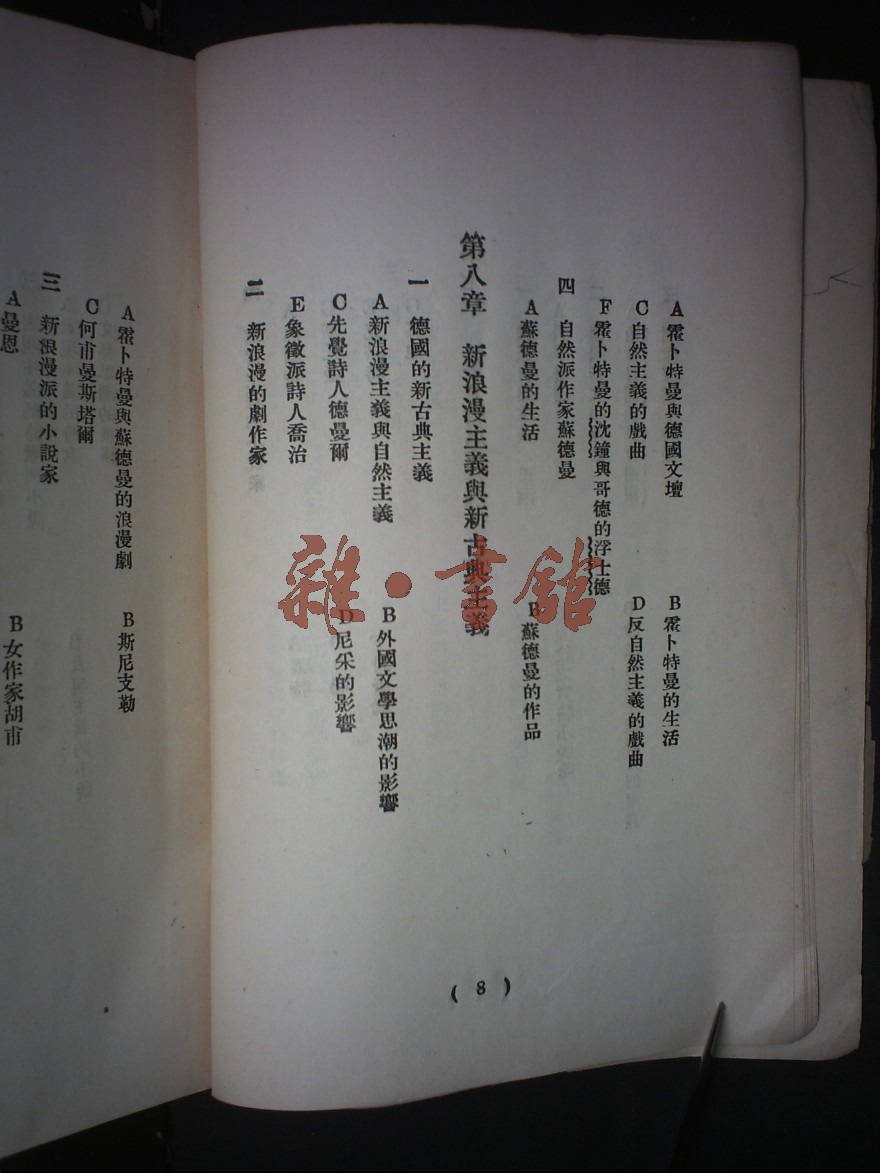 A 霍卜特曼與德國文壇
B 霍卜特曼的生活
C 自然主義的戲曲
D 反自然主義的戲曲
F 霍卜特曼的沈鐘與哥德的浮士德
四 自然派作家蘇德曼
A 蘇德曼的生活
B 蘇德曼的作品
第八章 新浪漫主義與新古典主義
一 德國的新古典主義
A 新浪漫主義與自然主義
B 外國文學思潮的影響
C 先覺詩人德曼爾
D 尼采的影響
E 象徵派詩人喬治
二 新浪漫的劇作家
( 8 )
A 霍卜特曼與蘇德曼的浪漫劇
B 斯尼支勒
C 何甫曼斯塔爾
三 新浪漫派的小說家
A 曼恩
B 女作家胡甫
雜·書館